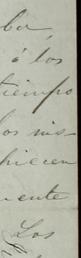 ber,
á los
tiempo
los mis-
hicieren
mente
Los